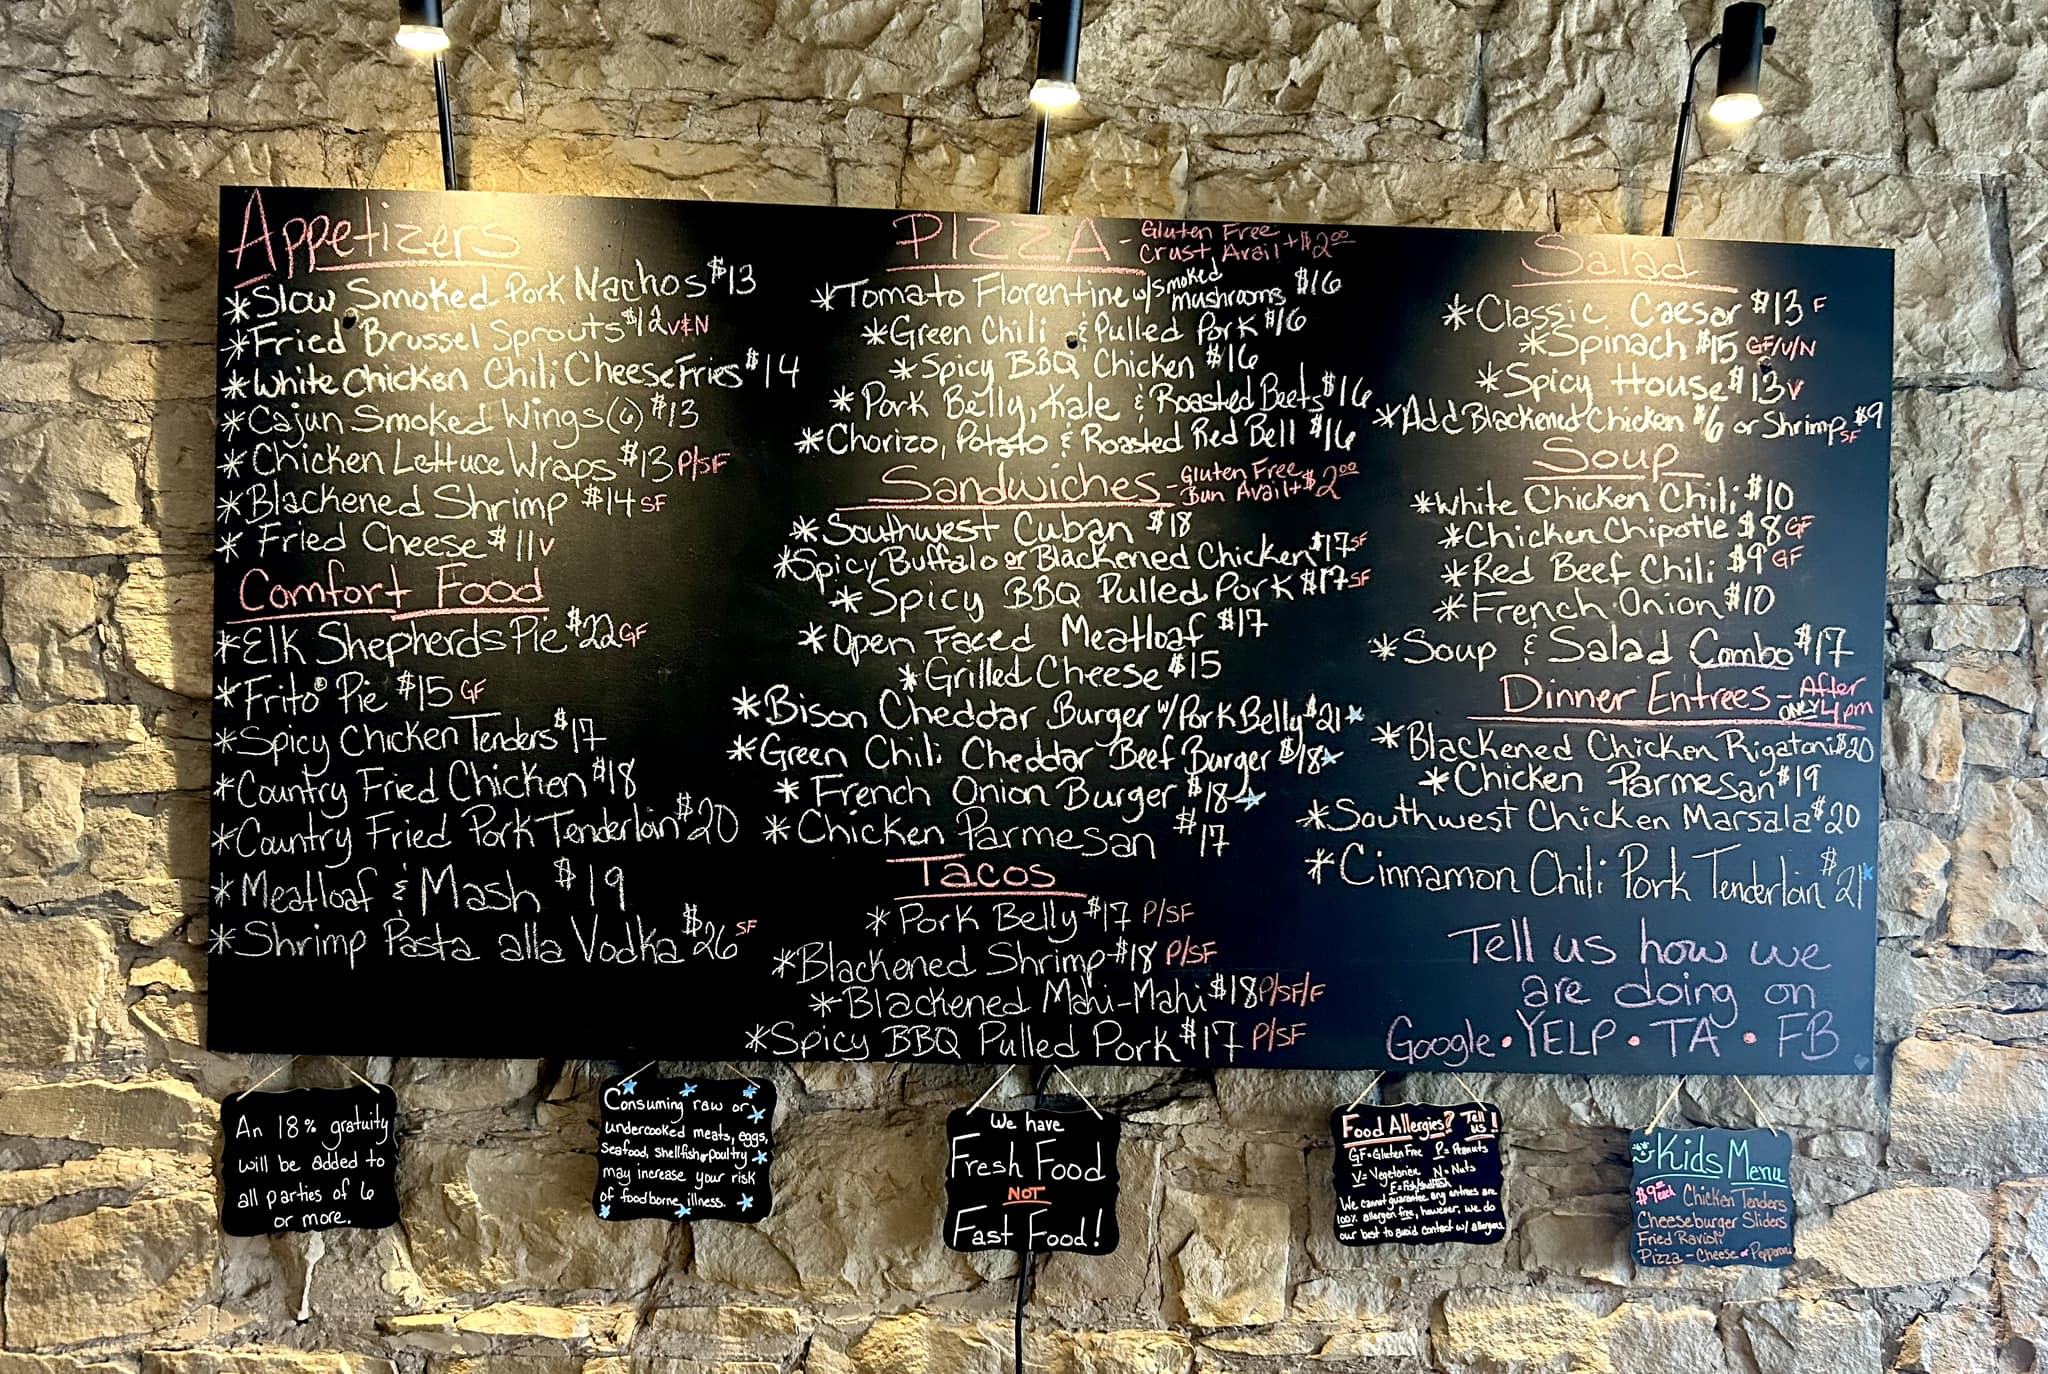 Appetizers
*Slow Smoked Pork Nachos $13
*Fried Brussel Sprouts $12 V&N
*White Chicken Chili Cheese Fries $14
*Cajun Smoked Wings (6) $13
*Chicken Lettuce Wraps $13 P/SF
*Blackened Shrimp $14 SF
*Fried Cheese $11 V
Comfort Food
*Elk Shepherds Pie $22 GF
*Frito® Pie $15 GF
*Spicy Chicken Tenders $17
*Country Fried Chicken $18
*Country Fried Pork Tenderloin $20
*Meatloaf & Mash $19
*Shrimp Pasta alla Vodka $26 SF
PIZZA - Gluten Free
Crust Avail +$2.00
*Tomato Florentine w/smoked
mushrooms $16
*Green Chili & Pulled Pork $16
*Spicy BBQ Chicken $16
*Pork Belly, Kale & Roasted Beets $16
*Chorizo, Potato & Roasted Red Bell $16
Sandwiches - Gluten Free
Bun Avail +$2.00
*Southwest Cuban $18
*Spicy Buffalo or Blackened Chicken $17 SF
*Spicy BBQ Pulled Pork $17 SF
*Open Faced Meatloaf $17
*Grilled Cheese $15
*Bison Cheddar Burger w/Pork Belly $21*
*Green Chili Cheddar Beef Burger $18*
*French Onion Burger $18*
*Chicken Parmesan $17
Tacos
*Pork Belly $17 P/SF
*Blackened Shrimp $18 P/SF
*Blackened Mahi-Mahi $18 P/SF/F
*Spicy BBQ Pulled Pork $17 P/SF
Salad
*Classic Caesar $13 F
*Spinach $15 GF/V/N
*Spicy House $13 V
*Add Blackened Chicken $6 or Shrimp $9
SF
Soup
*White Chicken Chili $10
*Chicken Chipotle $8 GF
*Red Beef Chili $9 GF
*French Onion $10
*Soup & Salad Combo $17
Dinner Entrees - After
ONLY 4pm
*Blackened Chicken Rigatoni $20
*Chicken Parmesan $19
*Southwest Chicken Marsala $20
*Cinnamon Chili Pork Tenderloin $21*
Tell us how we
are doing on
Google • YELP • TA • FB
An 18% gratuity
will be added to
all parties of 6
or more.
Consuming raw or
undercooked meats, eggs,
seafood, shellfish or poultry
may increase your risk
of foodborne illness.
We have
Fresh Food
NOT
Fast Food!
Food Allergies? Tell
us!
GF=Gluten Free P=Peanuts
V=Vegetarian N=Nuts
F=Fish/Shellfish
We cannot guarantee any entrees are
100% allergen free, however, we do
our best to avoid contact w/ allergens
Kids Menu
$9 each Chicken Tenders
Cheeseburger Sliders
Fried Ravioli
Pizza - Cheese or Pepperoni